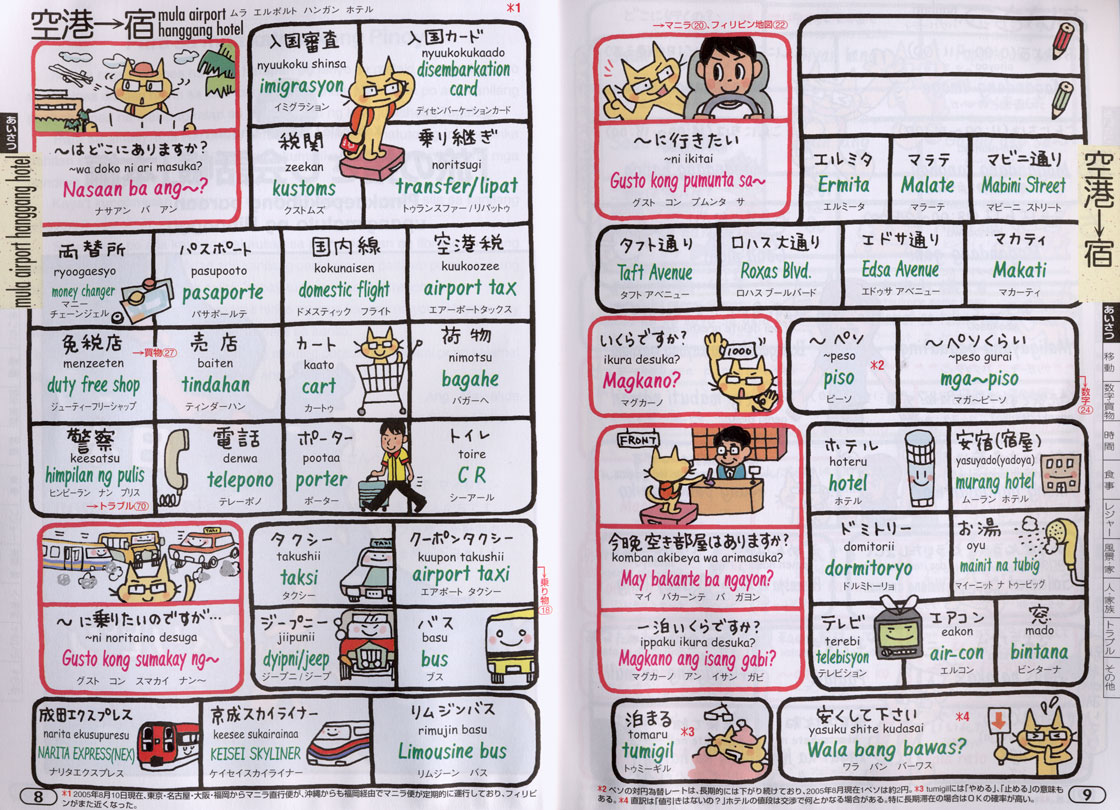 空港→宿 mula airport hanggang hotel
ムラ エルポルト ハンガン ホテル
*1
あいさつ
mula airport hanggang hotel
〜はどこにありますか?
~wa doko ni ari masuka?
Nasaan ba ang~?
ナサアン バ アン
入国審査
nyuukoku shinsa
imigrasyon
イミグラション
入国カード
nyuukokukaado
disembarkation card
ディセンバーケーションカード
税関
zeekan
kustoms
クストムズ
乗り継ぎ
noritsugi
transfer/lipat
トゥランスファー/リパットゥ
両替所
ryoogaesyo
money changer
マニー
チェーンジェル
パスポート
pasupooto
pasaporte
パサポールテ
国内線
kokunaisen
domestic flight
ドメスティック フライト
空港税
kuukoozee
airport tax
エアーポートタックス
免税店
→買物㉗
menzeeten
duty free shop
ジューティーフリーシャップ
売店
baiten
tindahan
ティンダーハン
カート
kaato
cart
カートゥ
荷物
nimotsu
bagahe
バガーへ
警察
keesatsu
himpilan ng pulis
ヒンピーラン ナン プリス
→トラブル㊀
電話
denwa
telepono
テレーポノ
ポーター
pootaa
porter
ポーター
トイレ
toire
CR
シーアール
TAXI
〜に乗りたいのですが…
~ni noritaino desuga
Gusto kong sumakay ng~
グスト コン スマカイ ナン〜
タクシー
takushii
taksi
タクシー
TAXI
クーポンタクシー
kuupon takushii
airport taxi
エアポート タクシー
→乗り物⑱
ジープニー
jiipunii
dyipni/jeep
ジープニ/ジープ
バス
basu
bus
ブス
成田エクスプレス
narita ekusupuresu
NARITA EXPRESS(NEX)
ナリタエクスプレス
京成スカイライナー
keesee sukairainaa
KEISEI SKYLINER
ケイセイスカイライナー
リムジンバス
rimujin basu
Limousine bus
リムジーン バス
8
*1 2005年8月10日現在、東京・名古屋・大阪・福岡からマニラ直行便が、沖縄からも福岡経由でマニラ便が定期的に運行しており、フィリピンがまた近くなった。
→マニラ⑳、フィリピン地図㉒
〜に行きたい
~ni ikitai
Gusto kong pumunta sa~
グスト コン プムンタ サ
エルミタ
Ermita
エルミータ
マラテ
Malate
マラーテ
マビニ通り
Mabini Street
マビーニ ストリート
タフト通り
Taft Avenue
タフト アベニュー
ロハス大通り
Roxas Blvd.
ロハス ブールバード
エドサ通り
Edsa Avenue
エドゥサ アベニュー
マカティ
Makati
マカーティ
いくらですか?
ikura desuka?
Magkano?
マグカーノ
1000
〜ペソ
~peso
piso
ピーソ
*2
〜ペソくらい
~peso gurai
mga~piso
マガ〜ピーソ
→数字㉔
FRONT
今晩空き部屋はありますか?
komban akibeya wa arimasuka?
May bakante ba ngayon?
マイ バカーンテ バ ガヨン
一泊いくらですか?
ippaku ikura desuka?
Magkano ang isang gabi?
マグカーノ アン イサン ガビ
ホテル
hoteru
hotel
ホテル
安宿(宿屋)
yasuyado(yadoya)
murang hotel
ムーラン ホテル
ドミトリー
domitorii
dormitoryo
ドルミトーリョ
お湯
oyu
mainit na tubig
マイーニット ナ トゥービッグ
テレビ
terebi
telebisyon
テレビション
エアコン
eakon
air-con
エルコン
窓
mado
bintana
ビンターナ
泊まる
tomaru
tumigil
トゥミーギル
*3
安くして下さい
yasuku shite kudasai
Wala bang bawas?
ワラ バン バーワス
*4
空港→宿
あいさつ
移動
数字買物
時間
食事
レジャー
風景・家
人・家族
トラブル
その他
*2 ペソの対円為替レートは、長期的には下がり続けており、2005年8月現在1ペソは約2円。*3 tumigilには「やめる」、「止める」の意味もある。*4 直訳は「値引きはないの?」ホテルの値段は交渉で何とかなる場合がある。特に長期滞在の場合はOKの確率が高い。
9